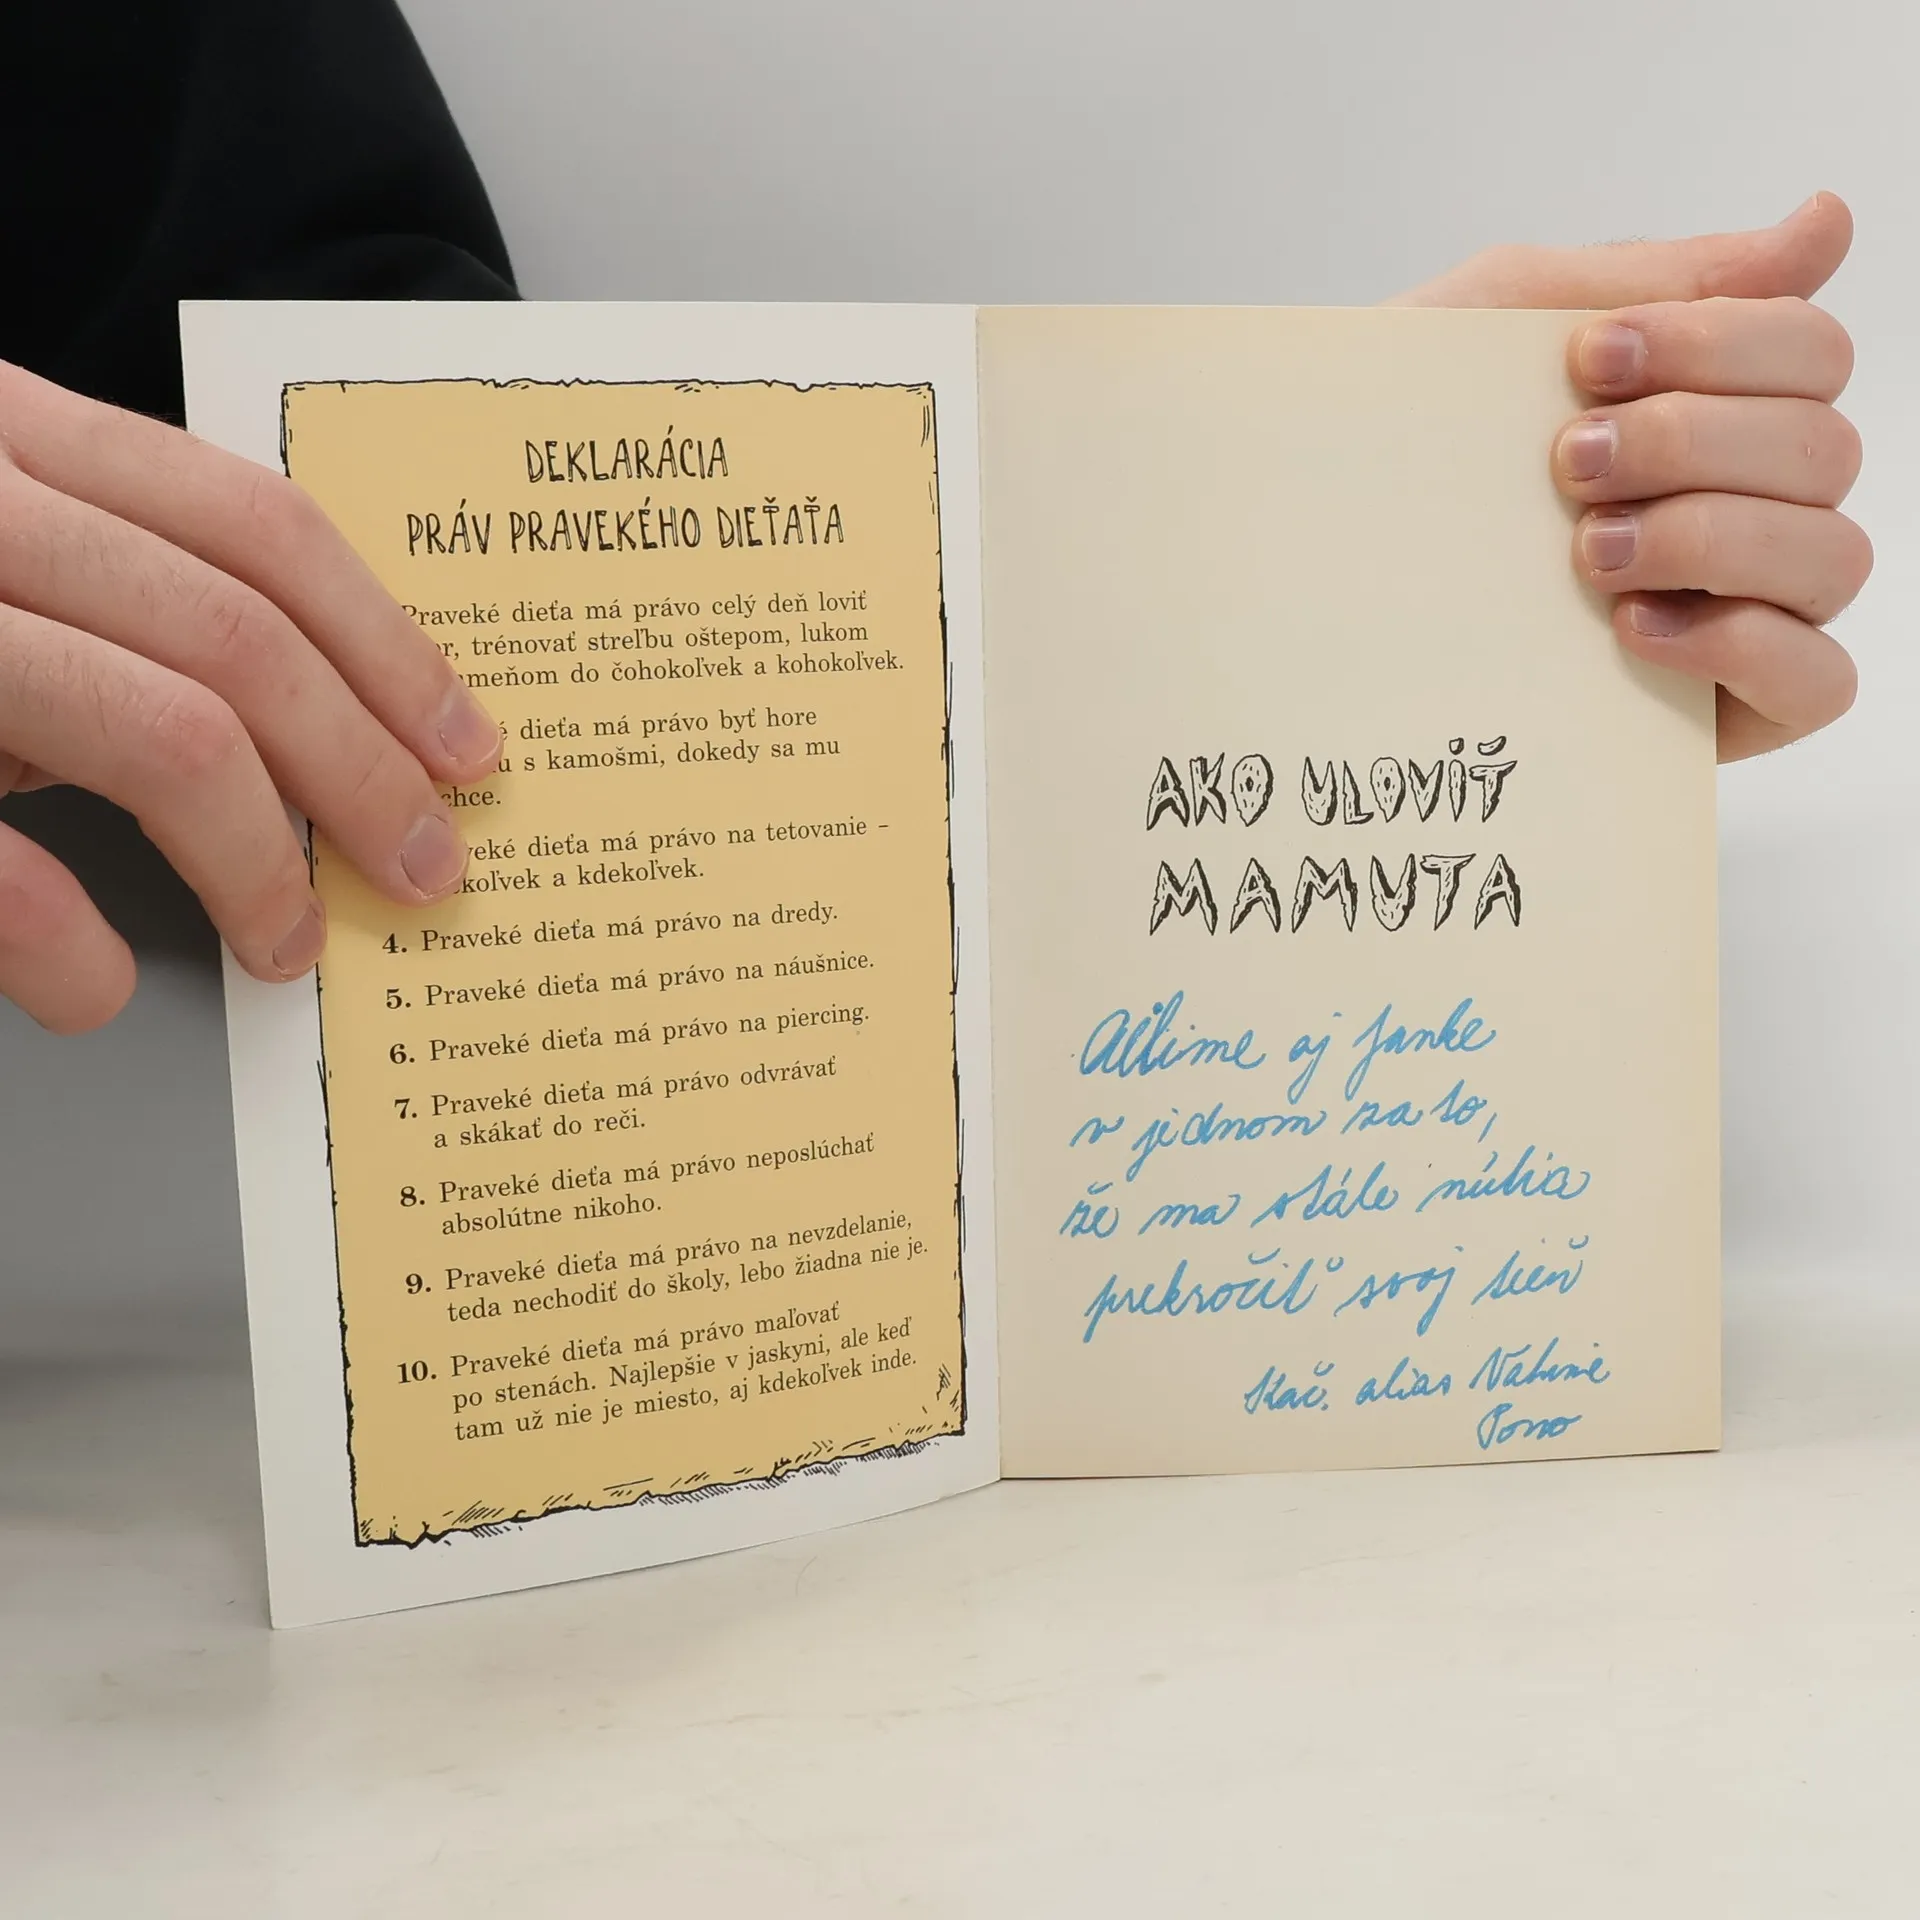 DEKLARÁCIA
PRÁV PRAVEKÉHO DIEŤAŤA
Praveké dieťa má právo celý deň loviť
trénovať streľbu oštepom, lukom
do čohokoľvek a kohokoľvek.
dieťa má právo byť hore
s kamošmi, dokedy sa mu
chce.
dieťa má právo na tetovanie –
a kdekoľvek.
4. Praveké dieťa má právo na dredy.
5. Praveké dieťa má právo na náušnice.
6. Praveké dieťa má právo na piercing.
7. Praveké dieťa má právo odvrávať
a skákať do reči.
8. Praveké dieťa má právo neposlúchať
absolútne nikoho.
9. Praveké dieťa má právo na nevzdelanie,
teda nechodiť do školy, lebo žiadna nie je.
10. Praveké dieťa má právo maľovať
po stenách. Najlepšie v jaskyni, ale keď
tam už nie je miesto, aj kdekoľvek inde.
AKO ULOVIŤ
MAMUTA
aj Janke
v jednom za to,
že ma stále núkia
prekročiť svoj tieň
alias